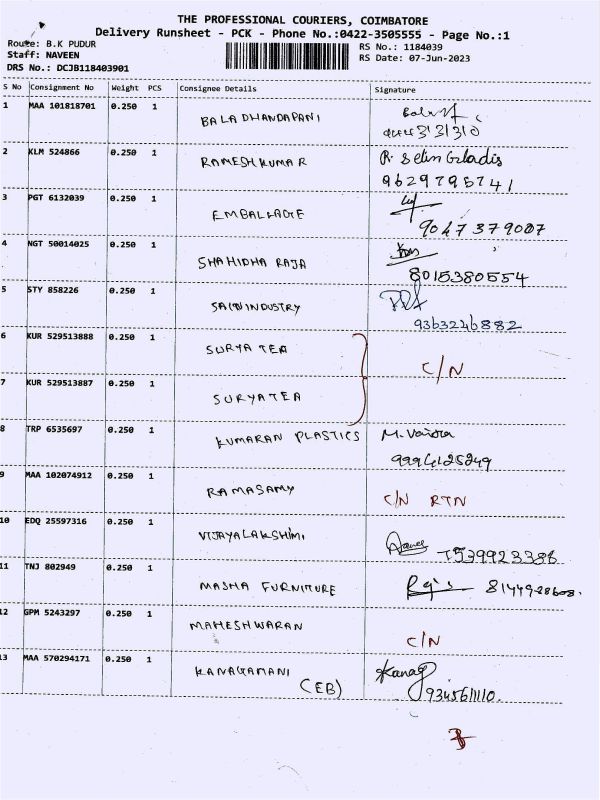 THE PROFESSIONAL COURIERS, COIMBATORE
Delivery Runsheet - PCK - Phone No.:0422-3505555 - Page No.:1
Route: B.K PUDUR
RS No.: 1184039
Staff: NAVEEN
RS Date: 07-Jun-2023
DRS No.: DCJB118403901
S No Consignment No Weight PCS Consignee Details Signature
1 MAA 101818701 0.250 1 BALADHANDAPANI
2 KLM 524866 0.250 1 RAMESHKUMAR R. Selin Gladis
9629795741
3 PGT 6132039 0.250 1 EMBALLAGE
9047379007
4 NGT 50014025 0.250 1 SHAHIDHA RAJA
8015380554
5 STY 858226 0.250 1 INDUSTRY
9363246882
6 KUR 529513888 0.250 1 SURYA TEA
C/N
7 KUR 529513887 0.250 1 SURYATEA
8 TRP 6535697 0.250 1 KUMARAN PLASTICS
9994125249
9 MAA 102074912 0.250 1 RAMASAMY C/N RTN
10 EDQ 25597316 0.250 1 VIJAYALAKSHIMI
11 TNJ 802949 0.250 1 MASHA FURNITURE
12 GPM 5243297 0.250 1 MAHESHWARAN
C/N
13 MAA 570294171 0.250 1 KANAGAMANI Kanag
(EB) 9345611110.